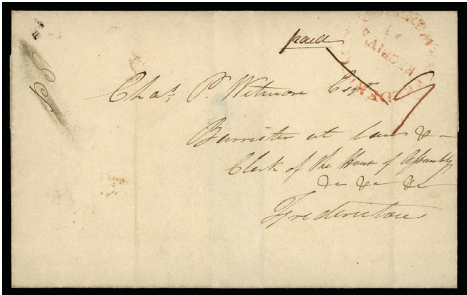 paid
Chas. P. Wetmore Esqr
Barrister at law & -
Clerk of the House of Assembly
&c &c &c
Fredericton